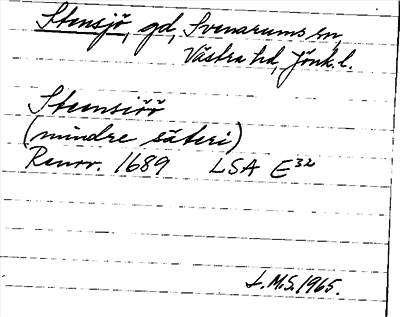 Stensjö, gd, Svenarums sn,
Västra hd, Jönk.l.
Steensiöö
(mindre säteri)
Renov. 1689 LSA E32
L.M.S. 1965.